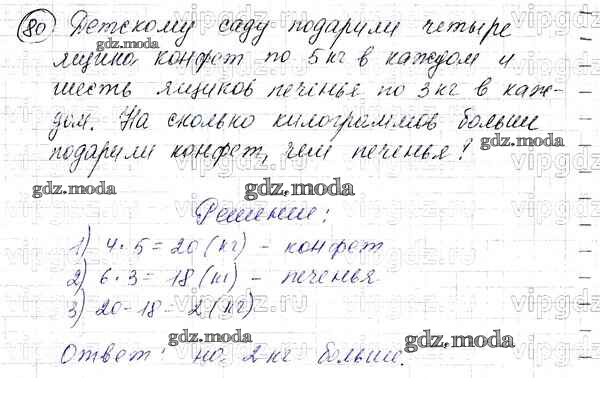 80 Детскому саду подарили четыре
ящика конфет по 5 кг в каждом и
шесть ящиков печенья по 3 кг в каж-
дом. На сколько килограммов больше
подарили конфет, чем печенья?
Решение:
1) 4 · 5 = 20 (кг) – конфет
2) 6 · 3 = 18 (кг) – печенья
3) 20 – 18 = 2 (кг)
Ответ: на 2 кг больше.
gdz.moda
gdz.moda
gdz.moda
gdz.moda
gdz.moda
gdz.moda
gdz.moda